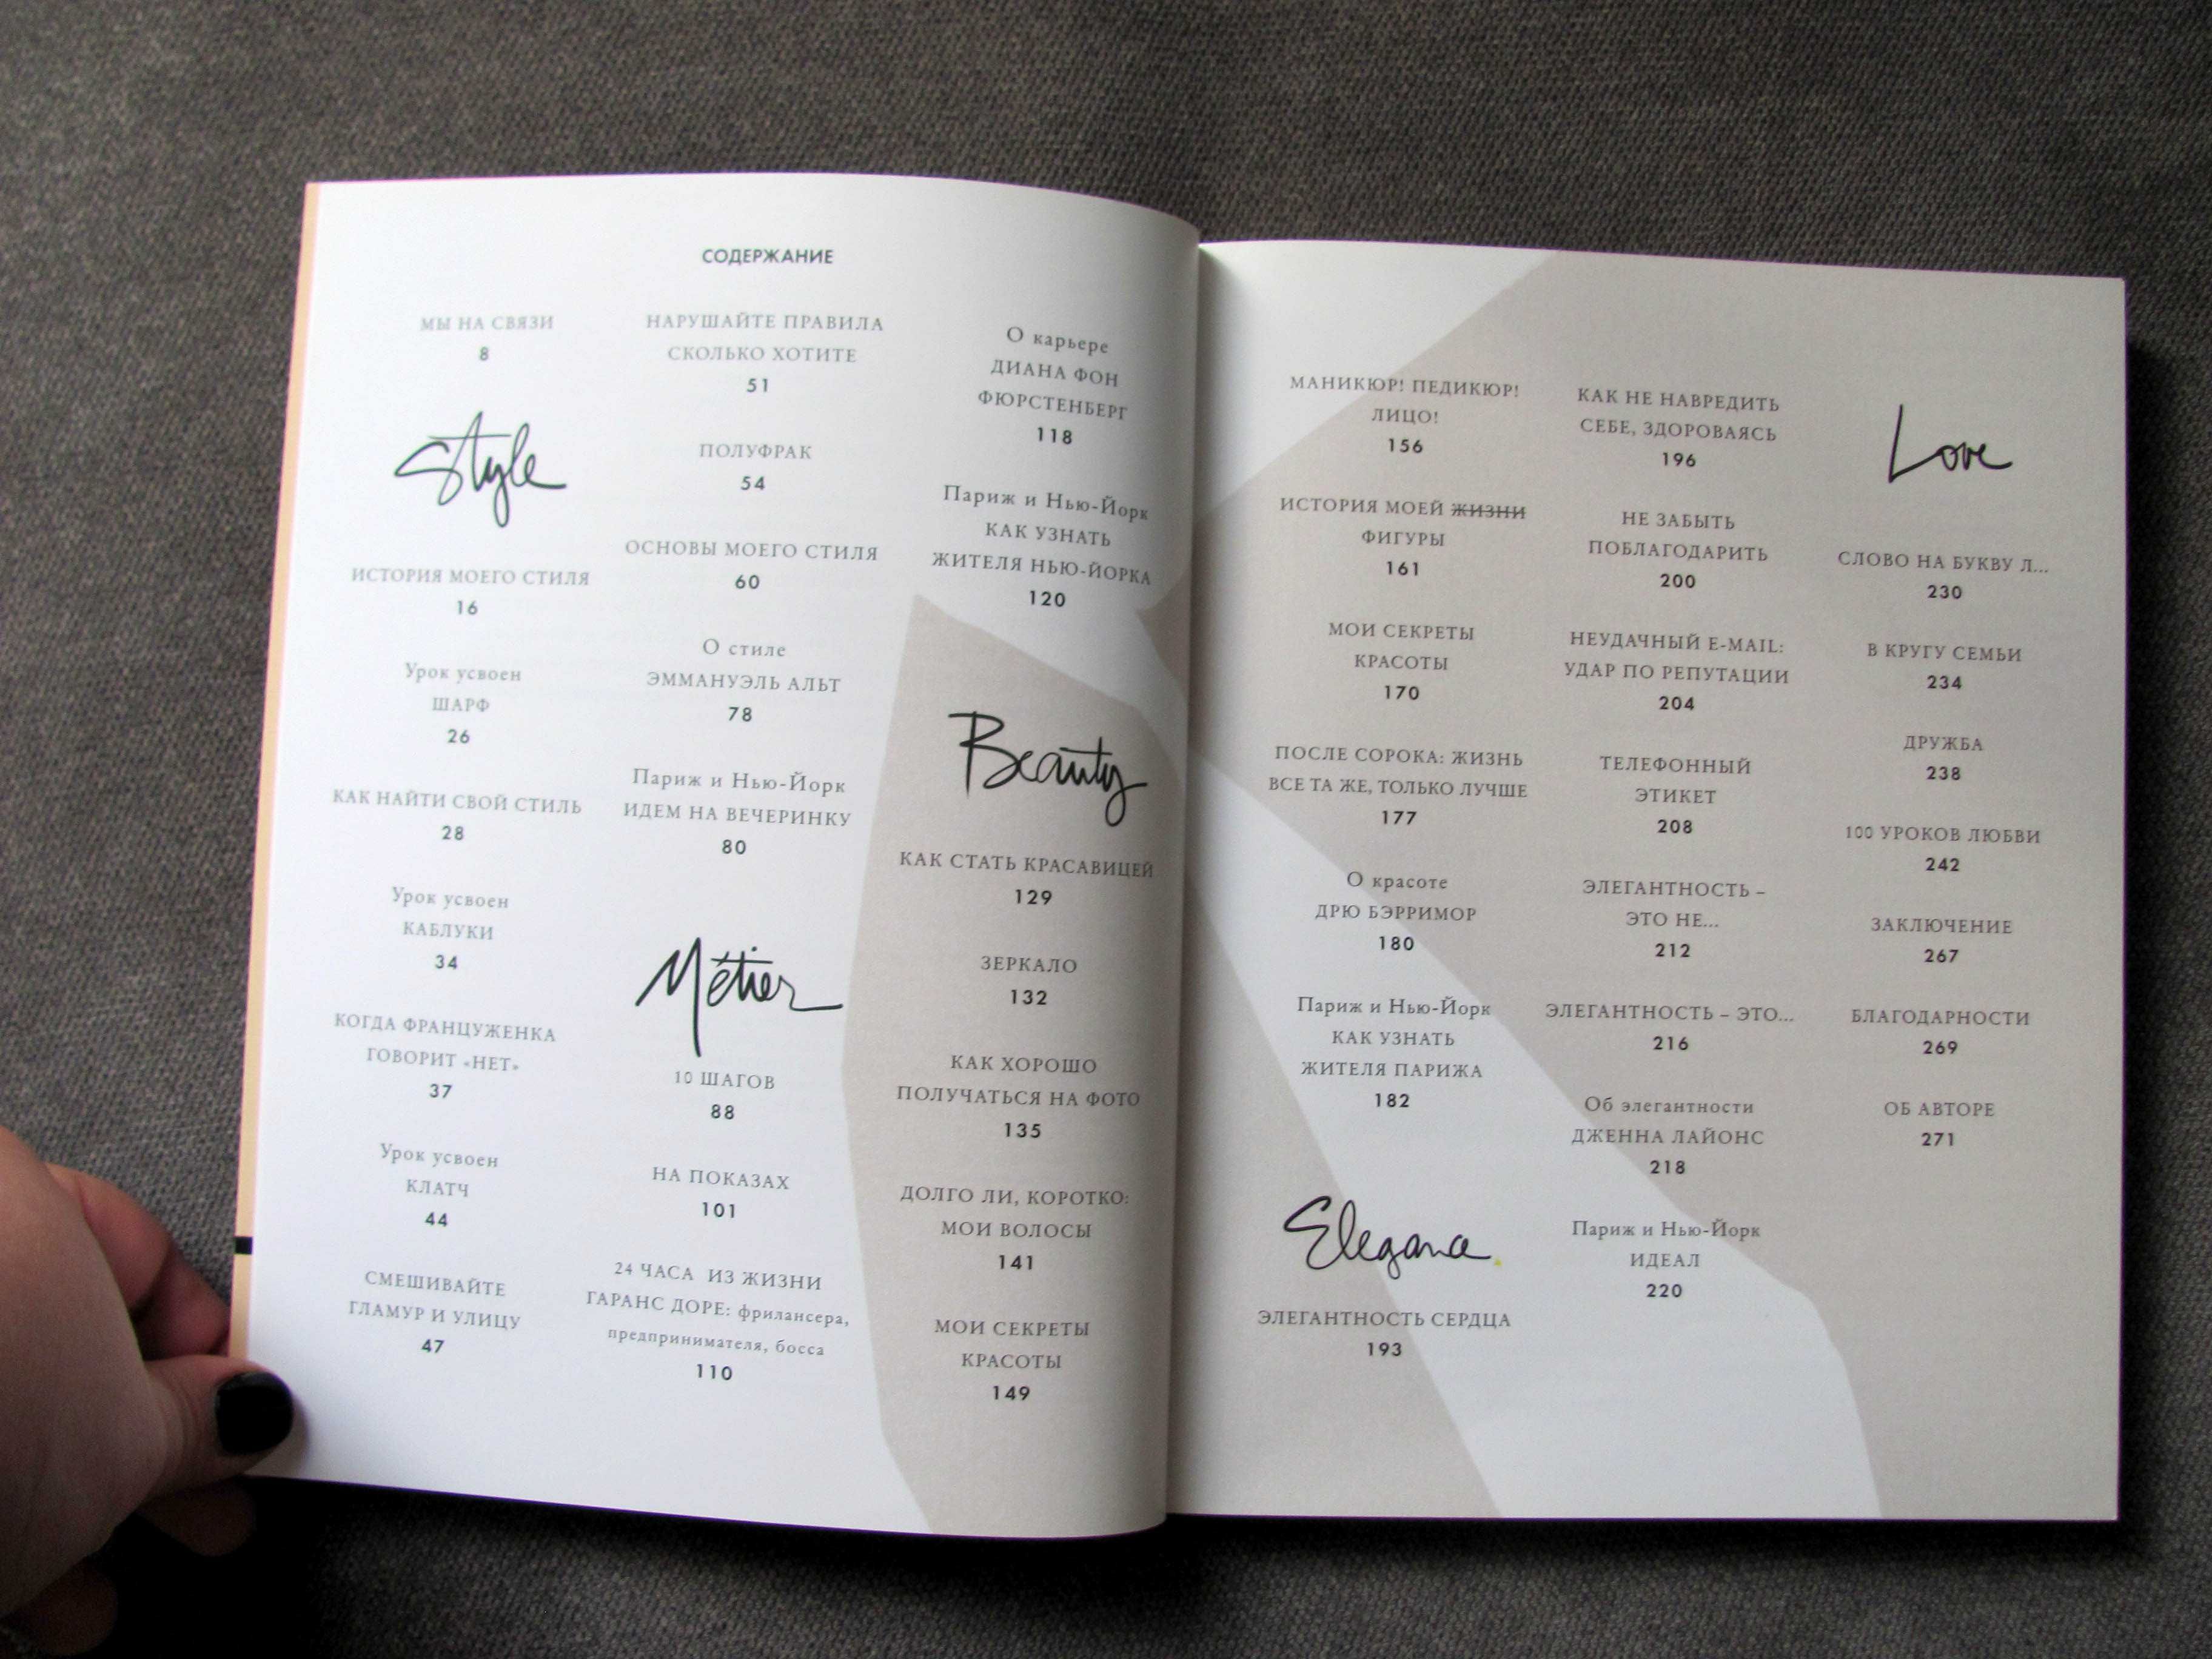 СОДЕРЖАНИЕ
МЫ НА СВЯЗИ
8
Style
ИСТОРИЯ МОЕГО СТИЛЯ
16
Урок усвоен
ШАРФ
26
КАК НАЙТИ СВОЙ СТИЛЬ
28
Урок усвоен
КАБЛУКИ
34
КОГДА ФРАНЦУЖЕНКА
ГОВОРИТ «НЕТ»
37
Урок усвоен
КЛАТЧ
44
СМЕШИВАЙТЕ
ГЛАМУР И УЛИЦУ
47
НАРУШАЙТЕ ПРАВИЛА
СКОЛЬКО ХОТИТЕ
51
ПОЛУФРАК
54
ОСНОВЫ МОЕГО СТИЛЯ
60
О стиле
ЭММАНУЭЛЬ АЛЬТ
78
Париж и Нью-Йорк
ИДЕМ НА ВЕЧЕРИНКУ
80
Métier
10 ШАГОВ
88
НА ПОКАЗАХ
101
24 ЧАСА ИЗ ЖИЗНИ
ГАРАНС ДОРЕ: фрилансера,
предпринимателя, босса
110
О карьере
ДИАНА ФОН
ФЮРСТЕНБЕРГ
118
Париж и Нью-Йорк
КАК УЗНАТЬ
ЖИТЕЛЯ НЬЮ-ЙОРКА
120
Beauty
КАК СТАТЬ КРАСАВИЦЕЙ
129
ЗЕРКАЛО
132
КАК ХОРОШО
ПОЛУЧАТЬСЯ НА ФОТО
135
ДОЛГО ЛИ, КОРОТКО:
МОИ ВОЛОСЫ
141
МОИ СЕКРЕТЫ
КРАСОТЫ
149
МАНИКЮР! ПЕДИКЮР!
ЛИЦО!
156
ИСТОРИЯ МОЕЙ ЖИЗНИ
ФИГУРЫ
161
МОИ СЕКРЕТЫ
КРАСОТЫ
170
ПОСЛЕ СОРОКА: ЖИЗНЬ
ВСЕ ТА ЖЕ, ТОЛЬКО ЛУЧШЕ
177
О красоте
ДРЮ БЭРРИМОР
180
Париж и Нью-Йорк
КАК УЗНАТЬ
ЖИТЕЛЯ ПАРИЖА
182
Elegance
ЭЛЕГАНТНОСТЬ СЕРДЦА
193
КАК НЕ НАВРЕДИТЬ
СЕБЕ, ЗДОРОВАЯСЬ
196
НЕ ЗАБЫТЬ
ПОБЛАГОДАРИТЬ
200
НЕУДАЧНЫЙ E-MAIL:
УДАР ПО РЕПУТАЦИИ
204
ТЕЛЕФОННЫЙ
ЭТИКЕТ
208
ЭЛЕГАНТНОСТЬ –
ЭТО НЕ...
212
ЭЛЕГАНТНОСТЬ – ЭТО...
216
Об элегантности
ДЖЕННА ЛАЙОНС
218
Париж и Нью-Йорк
ИДЕАЛ
220
Love
СЛОВО НА БУКВУ Л...
230
В КРУГУ СЕМЬИ
234
ДРУЖБА
238
100 УРОКОВ ЛЮБВИ
242
ЗАКЛЮЧЕНИЕ
267
БЛАГОДАРНОСТИ
269
ОБ АВТОРЕ
271